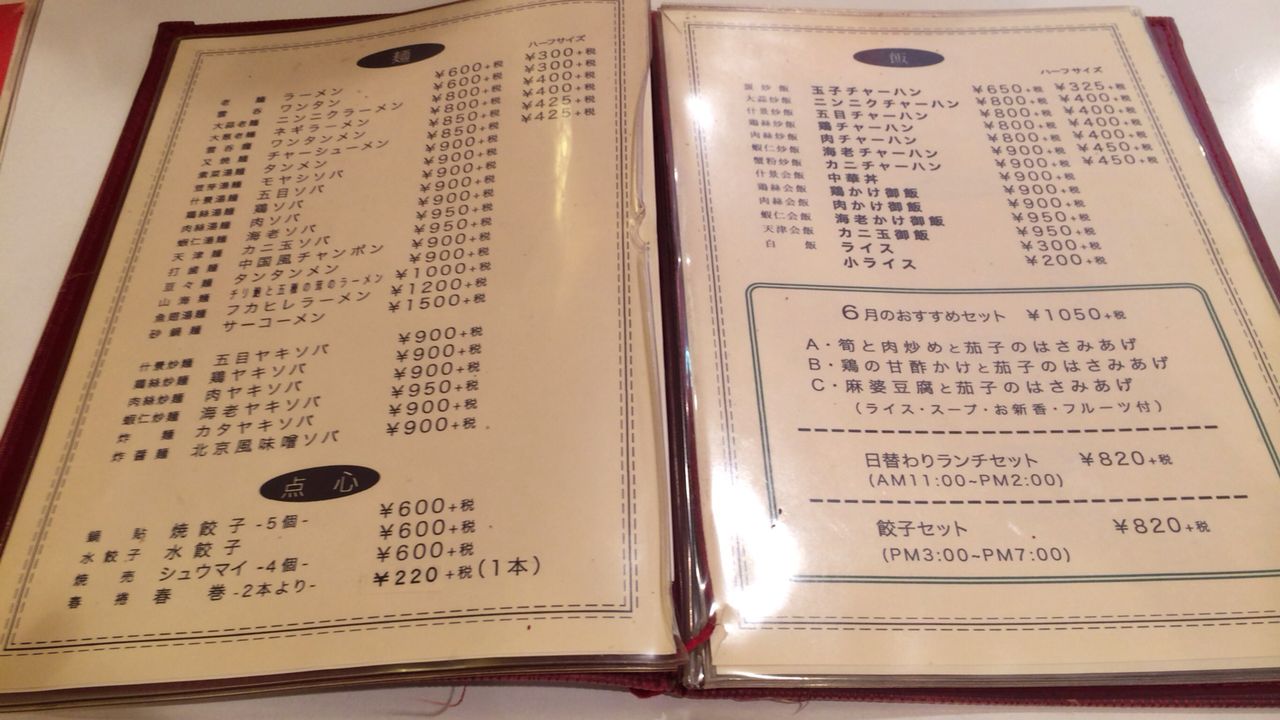 麺
ハーフサイズ
老麺 ラーメン ¥600+税 ¥300+税
雲呑 ワンタン ¥600+税 ¥300+税
大蒜老麺 ニンニクラーメン ¥800+税 ¥400+税
大葱老麺 ネギラーメン ¥800+税 ¥400+税
雲呑麺 ワンタンメン ¥850+税 ¥425+税
叉焼麺 チャーシューメン ¥850+税 ¥425+税
素菜湯麺 タンメン ¥900+税
豆芽湯麺 モヤシソバ ¥900+税
什景湯麺 五目ソバ ¥900+税
鶏絲湯麺 鶏ソバ ¥900+税
肉絲湯麺 肉ソバ ¥900+税
蝦仁湯麺 海老ソバ ¥950+税
天津麺 カニ玉ソバ ¥950+税
打滷麺 中国風チャンポン ¥900+税
豆々麺 タンタンメン ¥900+税
山海麺 チリ麺と五種の豆のラーメン ¥1000+税
魚翅湯麺 フカヒレラーメン ¥1200+税
砂鍋麺 サーコーメン ¥1500+税
什景炒麺 五目ヤキソバ ¥900+税
鶏絲炒麺 鶏ヤキソバ ¥900+税
肉絲炒麺 肉ヤキソバ ¥900+税
蝦仁炒麺 海老ヤキソバ ¥950+税
炸麺 カタヤキソバ ¥900+税
炸醤麺 北京風味噌ソバ ¥900+税
点心
鍋貼 焼餃子 -5個- ¥600+税
水餃子 水餃子 ¥600+税
焼売 シュウマイ -4個- ¥600+税
春捲 春巻 -2本より- ¥220+税(1本)
飯
ハーフサイズ
蛋炒飯 玉子チャーハン ¥650+税 ¥325+税
大蒜炒飯 ニンニクチャーハン ¥800+税 ¥400+税
什景炒飯 五目チャーハン ¥800+税 ¥400+税
鶏絲炒飯 鶏チャーハン ¥800+税 ¥400+税
肉絲炒飯 肉チャーハン ¥800+税 ¥400+税
蝦仁炒飯 海老チャーハン ¥900+税 ¥450+税
蟹粉炒飯 カニチャーハン ¥900+税 ¥450+税
什景会飯 中華丼 ¥900+税
鶏絲会飯 鶏かけ御飯 ¥900+税
肉絲会飯 肉かけ御飯 ¥900+税
蝦仁会飯 海老かけ御飯 ¥950+税
天津会飯 カニ玉御飯 ¥950+税
白飯 ライス ¥300+税
小ライス ¥200+税
6月のおすすめセット ¥1050+税
A・筍と肉炒めと茄子のはさみあげ
B・鶏の甘酢かけと茄子のはさみあげ
C・麻婆豆腐と茄子のはさみあげ
(ライス・スープ・お新香・フルーツ付)
日替わりランチセット ¥820+税
(AM11:00~PM2:00)
餃子セット ¥820+税
(PM3:00~PM7:00)